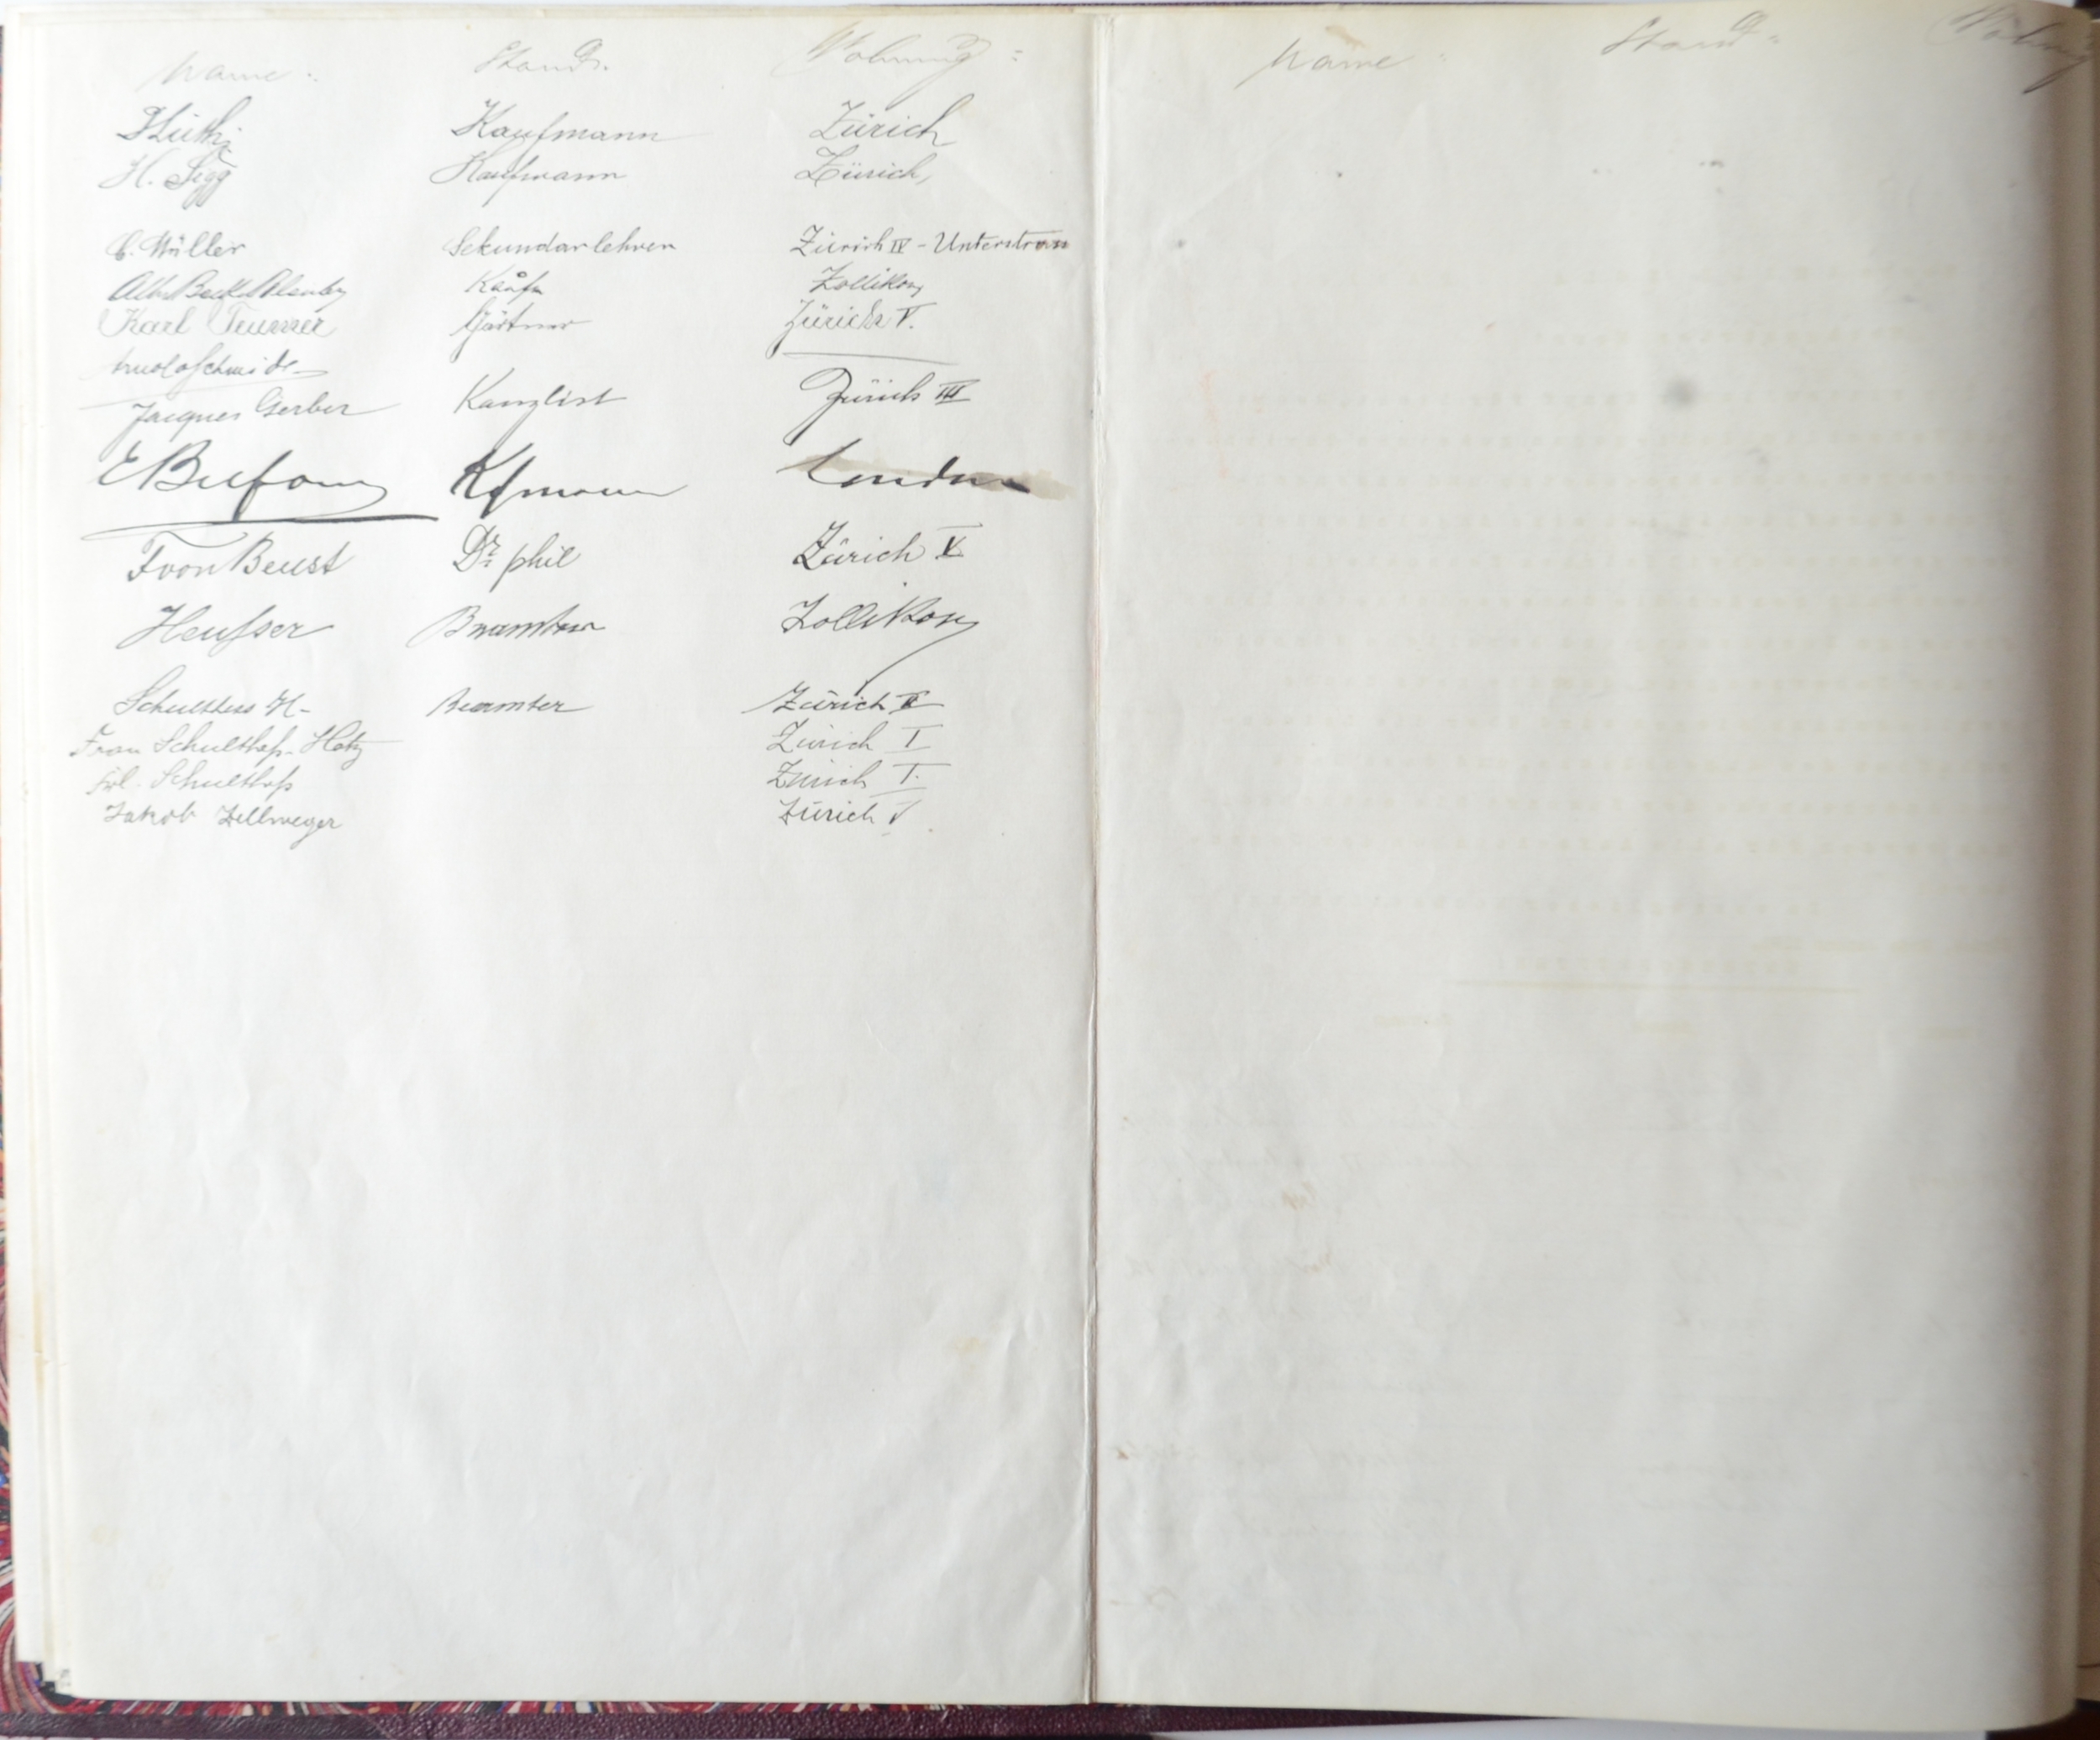 Name: Stand: Wohnung:
Kaufmann Zürich
H. Kaufmann Zürich,
C. Müller Sekundarlehrer Zürich IV - Unterstrass
Kaufm Zollikon
Karl Gärtner Zürich V.
Arnold Schmidt
Jacques Gerber Kanzlist Zürich III
E Kfmann London
F von Beust Dr. phil Zürich V
Heusser Beamter Zollikon
Schulthess H. Beamter Zürich
Frau Schulthess-Hotz Zürich I
Frl. Schulthess Zürich I.
Jakob Zellweger Zürich V
Name: Stand: Wohnung